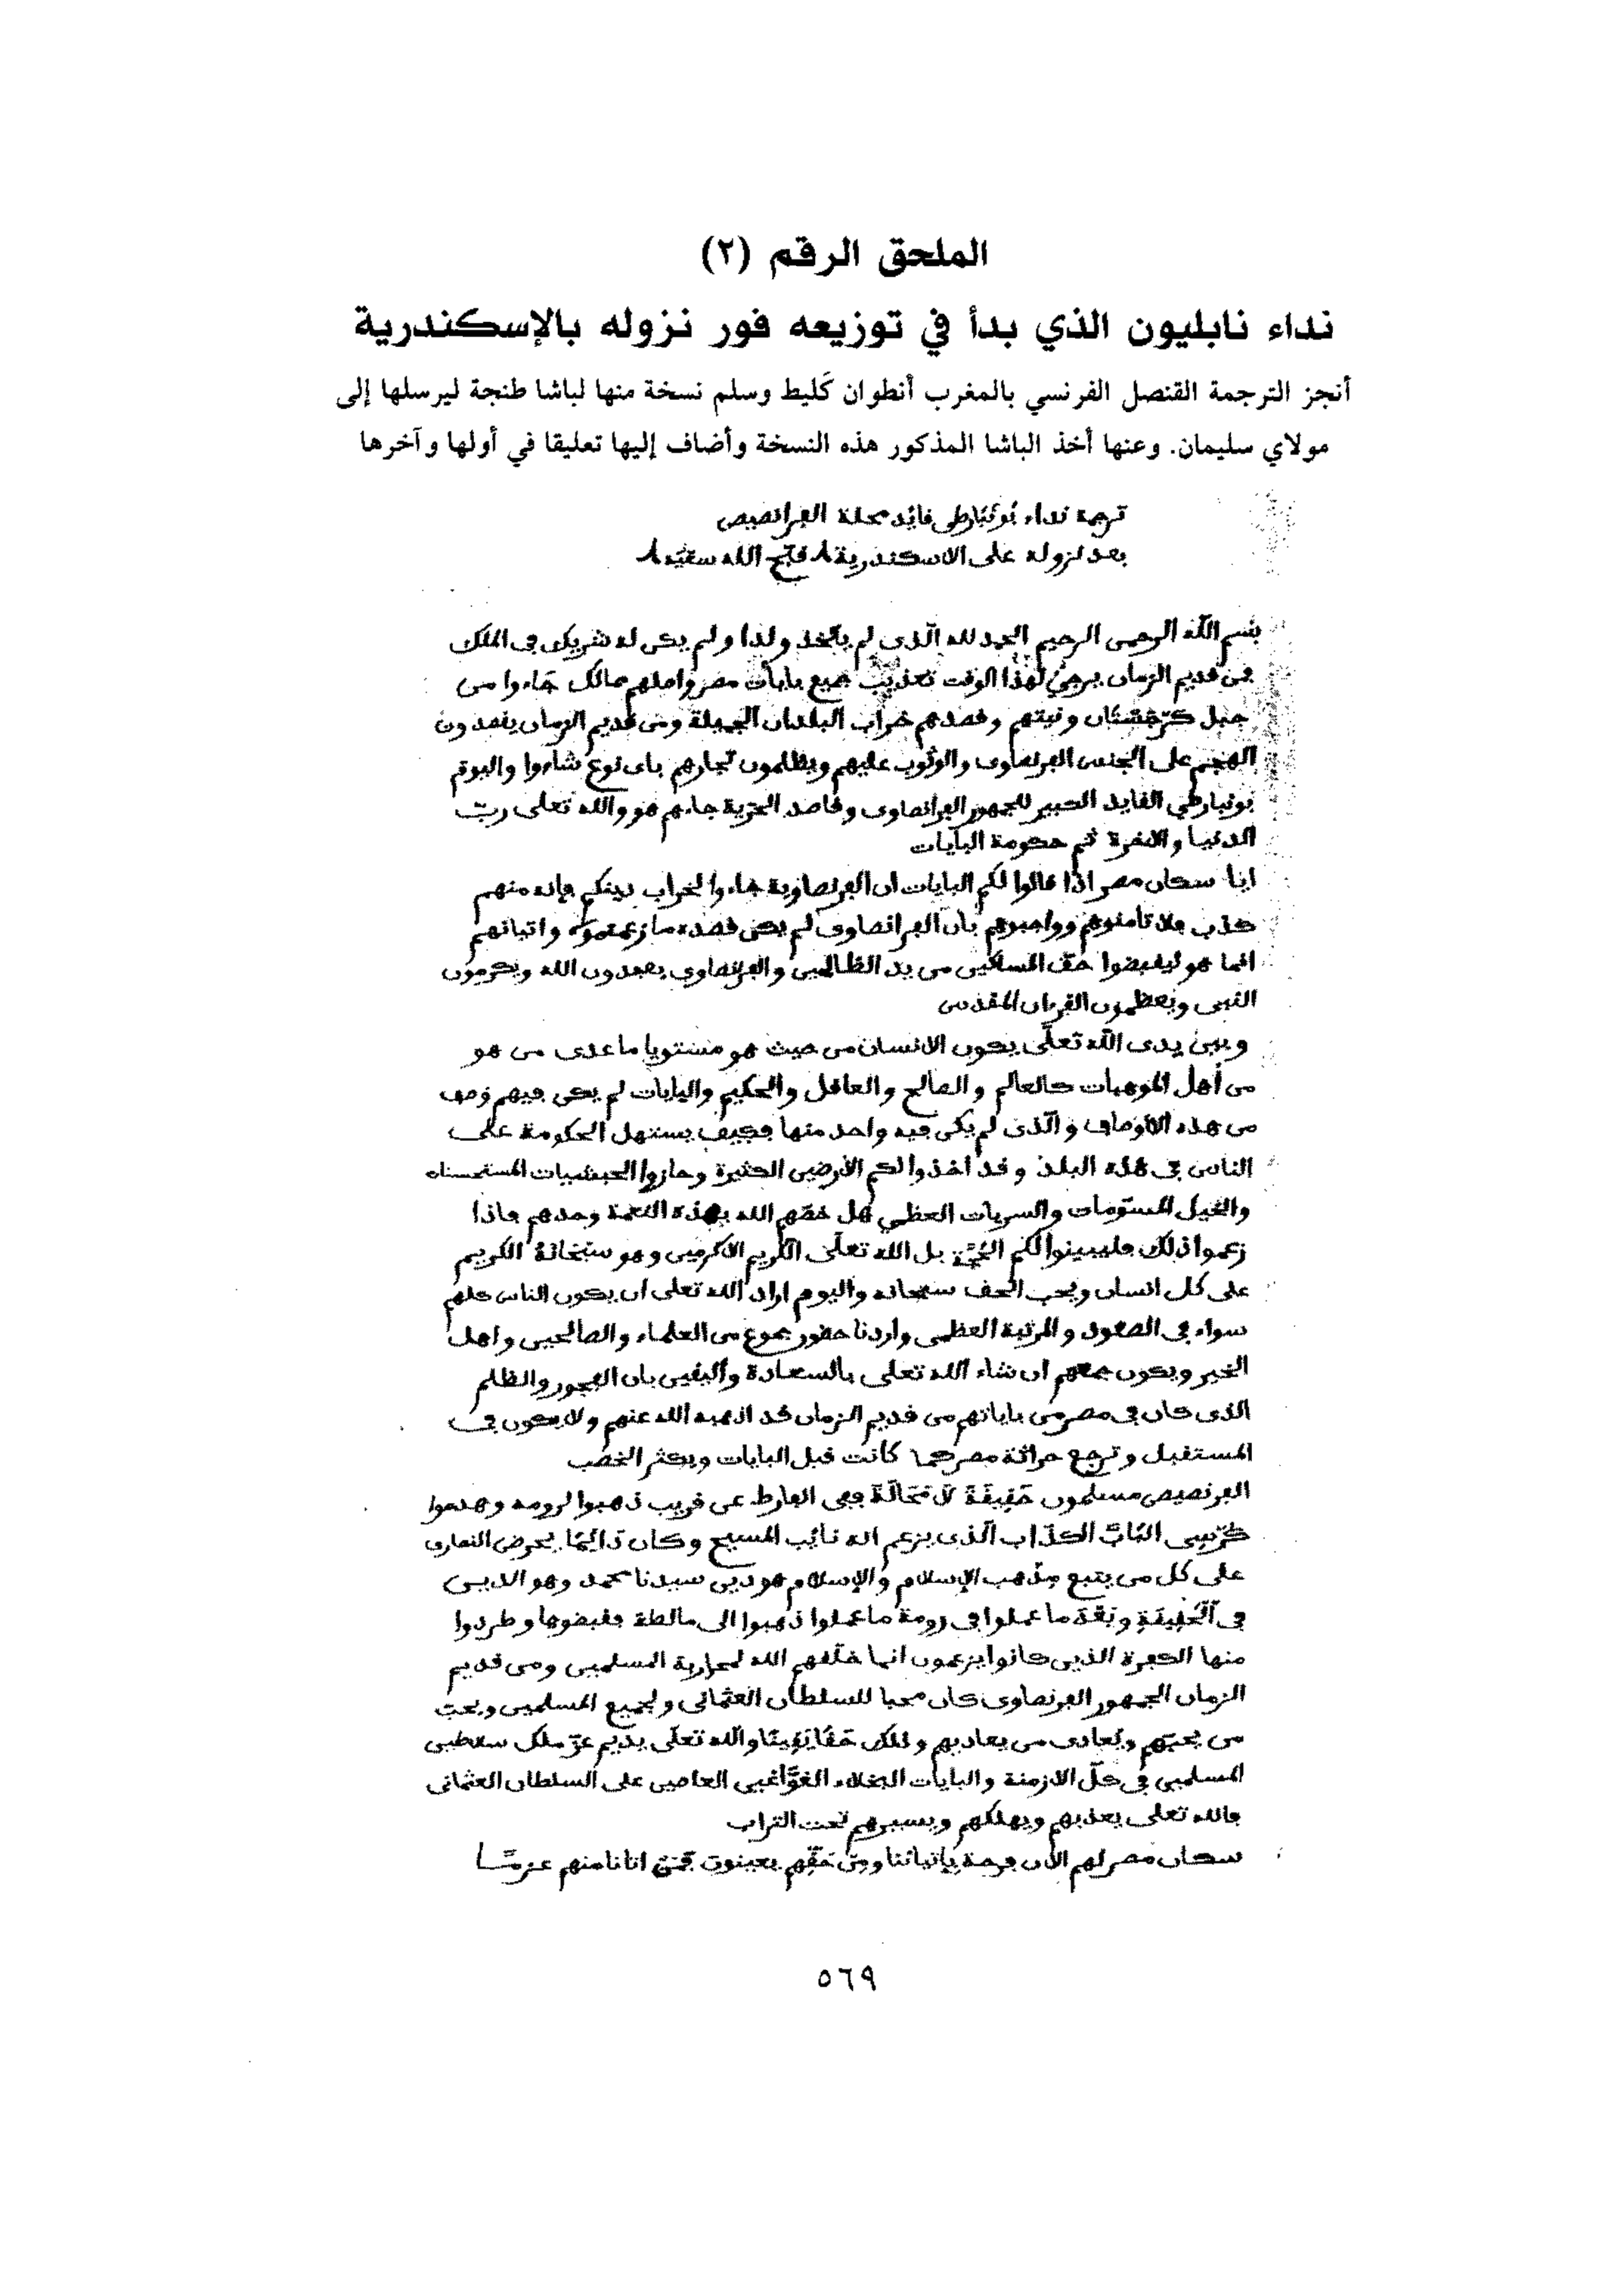 الملحق الرقم (٢)
نداء نابليون الذي بدأ في توزيعه فور نزوله بالإسكندرية
أنجز الترجمة القنصل الفرنسي بالمغرب أنطوان كَليط وسلم نسخة منها لباشا طنجة ليرسلها إلى
مولاي سليمان. وعنها أخذ الباشا المذكور هذه النسخة وأضاف إليها تعليقا في أولها وآخرها
ترجمة نداء بُونَبَارطي فائد محلة الفرانصيص
بعد نزوله على الاسكندرية فبّح الله سعيَه
بسم الله الرحمن الرحيم الحمد لله الّذى لم يتّخذ ولدا ولم يكن له شريك فى الملك
فمن قديم الزمان لهذا الوقت جميع بايات مصر واصلهم ممالك جَاءوا من
جبل ونيتهم وقصدهم خراب البلدان الجميلة ومن قديم الزمان يقصدون
الهجم على الجنس الفرنصاوى والوثوب عليهم ويظلمون تجارهم باى نوع شاءوا واليوم
بونبارطي القايد الكبير للجمهور الفرانصاوى وقاصد الحرية جاءهم هو والله تعلى ربّ
الدنيا والاخرة ثم حكومة البايات
ايا سكان مصر اذا قالوا لكم البايات ان الفرنصاوية جاءوا لخراب دينكم فإنه منهم
كذب فلا تامنوهم وواجبوهم بأن الفرانصاوى لم يكن قصده ما زعمتموه واتيانهم
انما هو ليقبضوا حقّ المساكين من يد الظالمين والفرنصاوى يعبدون الله ويكرمون
النبى ويعظمون القرءان المقدس
وبين يدى الله تعلَى يكون الانسان من حيث هو مستويا ما عدى من هو
من أهل الموهبات كالعالم والصالح والعاقل والحكيم والبايات لم يكن فيهم وَصف
من هذه الأوصاف والّذى لم يكن فيه واحد منها فكيف يستهل الحكومة على
الناس فى هذه البلد وقد أخذوا لكم الأرضين الكثيرة وحازوا الحبشيات المستحسناه
والخيل المسوّمات والسريات العظمي هل خصّهم الله بهذه النعمة وحدهم فاذا
زعموا ذلك فليبينوا لكم الحجّة بل الله تعلَى الكريم الاكرمين وهو سبْحَانهُ الكريم
على كل انسان ويحب الحق سبحانه واليوم اراد الله تعلى ان يكون الناس كلهم
سواء فى الصعود والمرتبة العظمى واردنا حضور جموع من العلماء والصالحين واهل
الخير ويكون جمعهم ان شاء الله تعلى بالسعادة واليقين بان الفجور والظلم
الذى كان فى مصر من باياتهم من قديم الزمان قد اذهبه الله عنهم ولا يكون فى
المستقبل وترجع حراثة مصر كما كانت قبل البايات ويكثر الخصب
الفرنصيص مسلمون حَقِيقَةً لاَ مَحَالَةَ ففى الفارط عن قريب ذهبوا لرومه وهدموا
كرْسِى البَابَّ الكذّاب الّذى يزعم انه نائب المسيح وكان دَائِمًا يحرض النصارى
على كل من يتبع مذهب الإسلام والإسلام هو دين سيدنا محمد وهو الدين
فى الْحَقِيقَةِ وبَعْدَ ما عملوا فى رومة ما عملوا ذهبوا الى مالطة فقبضوها وطردوا
منها الكفرة الذين كانوا يزعمون انما خلّفهم الله لمحاربة المسلمين ومن قديم
الزمان الجمهور الفرنصاوى كان محبا للسلطان العثمانى ولجميع المسلمين ويحبّ
من يحبّهم ويُعادى من يعاديهم وذلك حَقًا يَقِينًا والله تعلَى يديم عزّ ملك سلاطين
المسلمين فى كلّ الازمنة والبايات البخلاء العاصين على السلطان العثمانى
فالله تعلى يعذبهم ويهلكهم ويسيرهم تحت التراب
سكان مصر لهم الآن فرحة بإتياننا ومن حَقِّهم اتانا منهم
٥٦٩